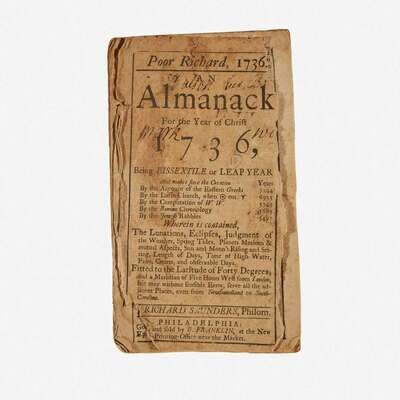 Poor Richard, 1736.
AN
Almanack
For the Year of Christ
1736,
Being BISSEXTILE or LEAP YEAR
And makes since the Creation Years
By the Account of the Eastern Greeks
By the Latin Church, when ☉ ent. ♈
By the Computation of W. W.
By the Roman Chronology
By the Jewish Rabbies
Wherein is contained,
The Lunations, Eclipses, Judgment of
the Weather, Spring Tides, Planets Motions &
mutual Aspects, Sun and Moon's Rising and Set-
ting, Length of Days, Time of High Water,
Fairs, Courts, and observable Days.
Fitted to the Latitude of Forty Degrees,
and a Meridian of Five Hours West from London,
but may without sensible Error, serve all the ad-
jacent Places, even from Newfoundland to South-
Carolina.
RICHARD SAUNDERS, Philom.
PHILADELPHIA:
and sold by B. FRANKLIN, at the New
Printing-Office near the Market.